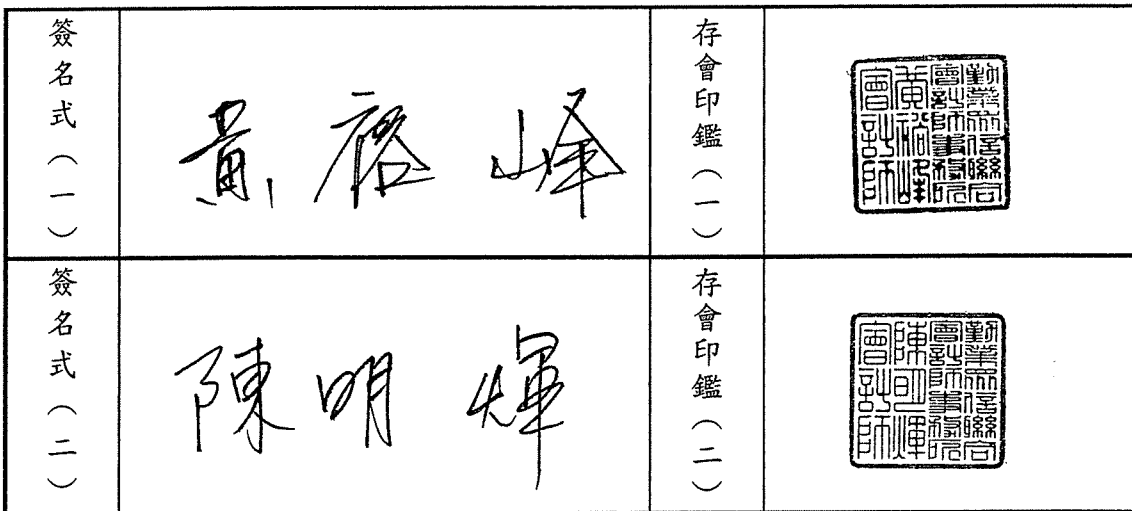 簽名式（一）
黃裕峰
存會印鑑（一）
勤業眾信聯合
會計師事務所
黃裕峰
會計師
簽名式（二）
陳明煇
存會印鑑（二）
勤業眾信聯合
會計師事務所
陳明煇
會計師